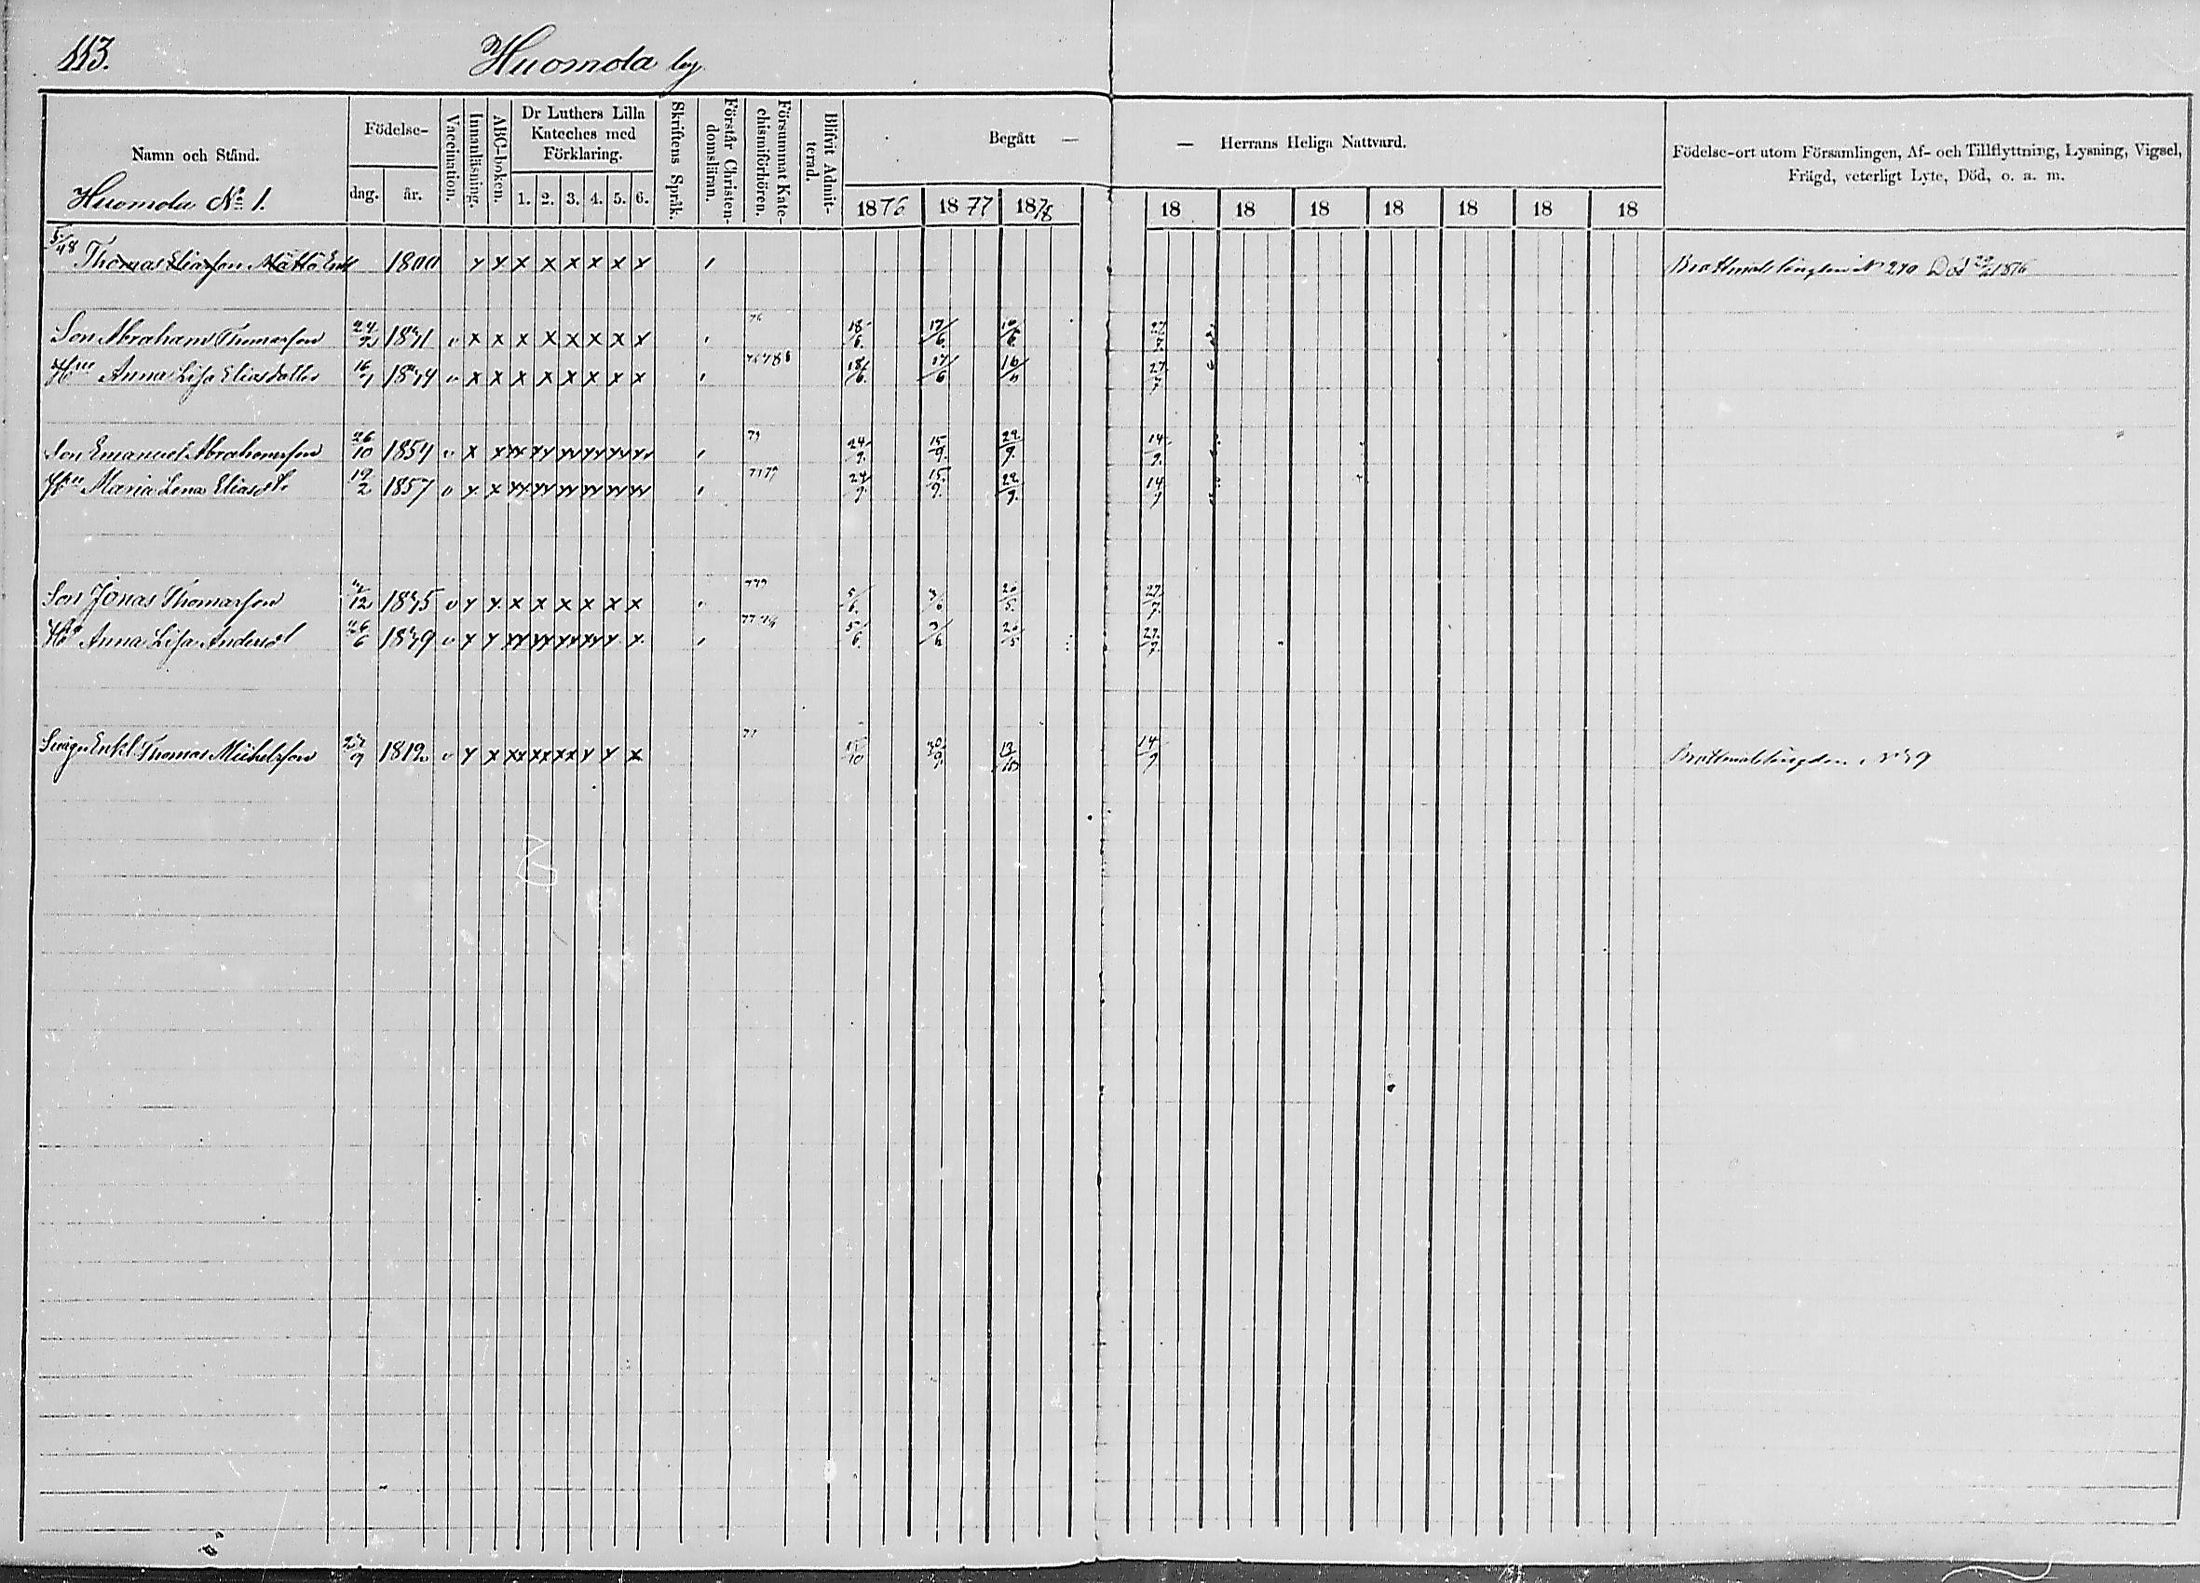 113. Huomola by
Namn och Stånd. Födelse- dag. år. Vaccination. Innanläsning. ABC-boken. Dr Luthers Lilla Kateches med Förklaring. 1. 2. 3. 4. 5. 6. Skriftens Språk. Förstår Christen-domsläran. Försummat Kate-chismiförhören. Blifvit Admit-terad. Begått — — Herrans Heliga Nattvard. Födelse-ort utom Församlingen, Af- och Tillflyttning, Lysning, Vigsel,
Frägd, veterligt Lyte, Död, o. a. m.
Huomola No 1. 1876 1877 1878 18 18 18 18 18 18 18
5/48 Thomas Eliasson Mättö Enkl 1800 x x x x x x x x Brottmålslängden No 270 Död 1876
Son Abraham Thomasson 1821 v x x x x x x x x 76 18/6. 17/6. 16/6. 27/7
Hu Anna Lisa Eliasdotter 16/1 1824 v x x x x x x x x 18/6. 17/6 16/6 27/7
Son Emanuel Abrahamsson 26/10 1854 v x x xx xx xx xx xx xx 79 24/9. 15/9. 29/9. 14/9.
Hu Maria Lena Eliasd 19/2 1857 v x x xx xx xx xx xx xx 24/9. 15/9. 29/9. 14/9
Son Jonas Thomasson 1835 v x x x x x x x x 5/6. 3/6 20/5. 27/7.
Hu Anna Lisa Andersd 26/6 1839 v x x xx xx xx xx x x 5/6. 3/6 20/5 27/7
Enkl. Thomas Michelsson 1812 v x x xx xx xx x x x 77 15/10 30/9. 13/10 14/9 Brottmålslängden